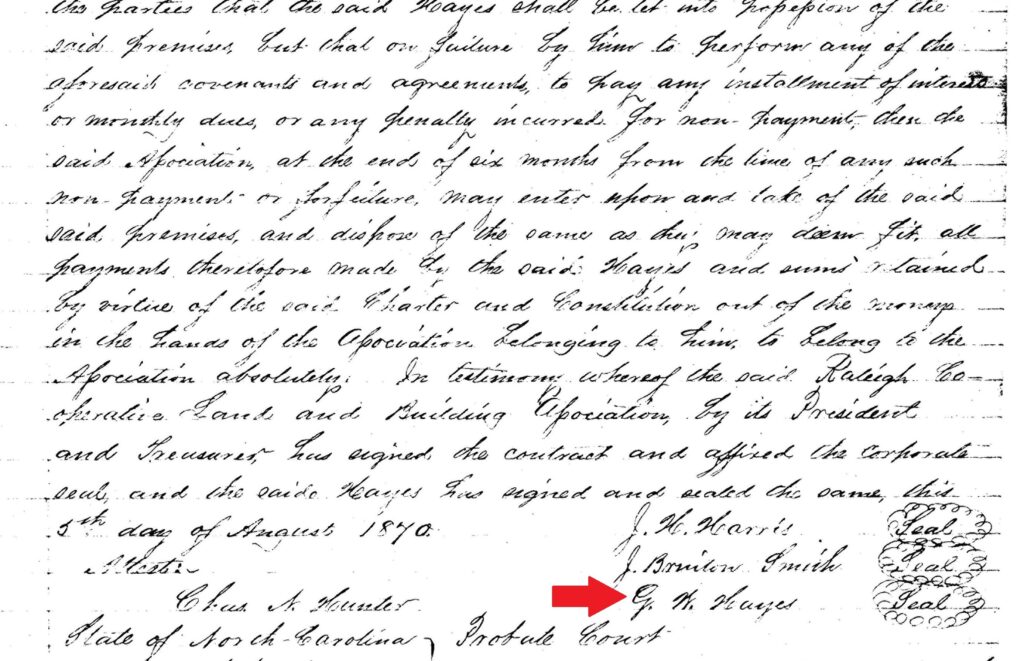 the parties that the said Hayes shall be let into possession of the
said premises, but that on failure by him to perform any of the
aforesaid covenants and agreements, to pay any installment of interest
or monthly dues, or any penalty incurred for non-payment, then the
said Association, at the end of six months from the time of any such
non-payment or forfeiture, may enter upon and take of the said
said premises, and dispose of the same as they may deem fit, all
payments theretofore made by the said Hayes and sums retained
by virtue of the said Charter and Constitution out of the money
in the hands of the Association belonging to him, to belong to the
Association absolutely. In testimony whereof the said Raleigh Co-
operative Land and Building Association, by its President
and Treasurer, has signed the contract and affixed the corporate
seal, and the said Hayes has signed and sealed the same, this
5th day of August 1870.
J. H. Harris Seal
Attest:
J. Brinton Smith Seal
Chas. N. Hunter
G. W. Hayes Seal
State of North-Carolina } Probate Court